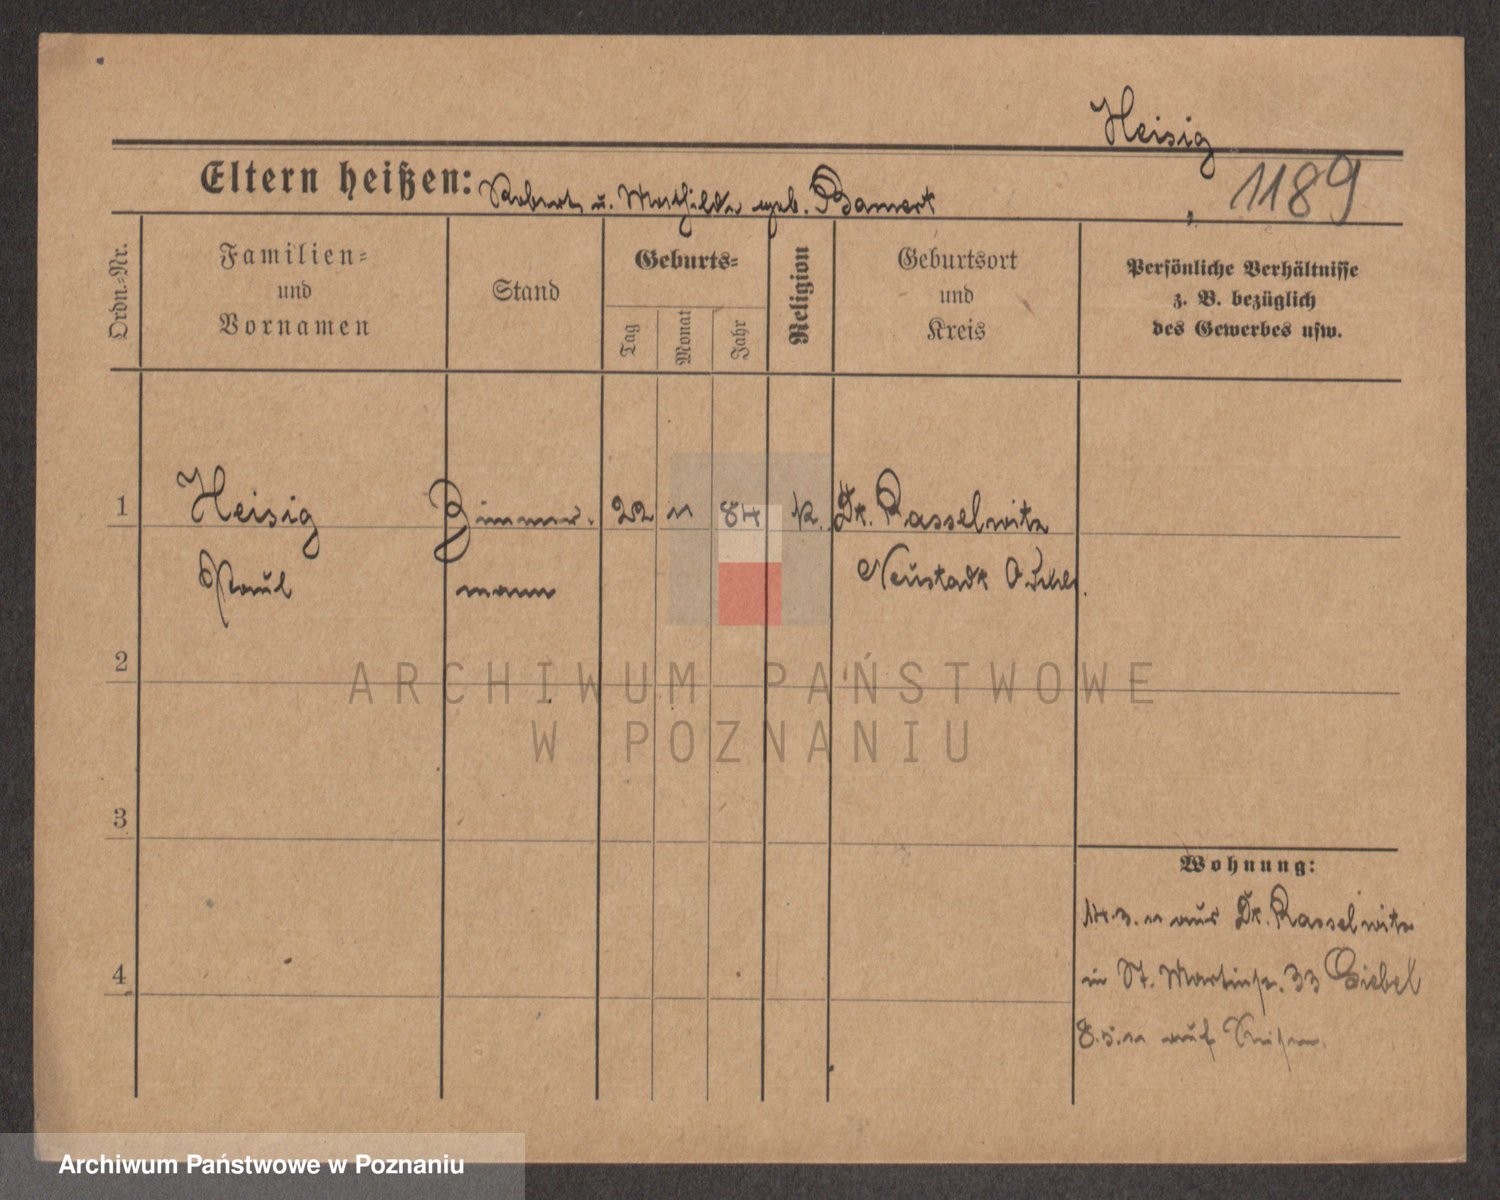 Heisig
Eltern heißen: Robert u. Mathilde geb. Bamert
1189
Ordn.-Nr.
Familien-
und
Vornamen
Stand
Geburts-
Tag
Monat
Jahr
Religion
Geburtsort
und
Kreis
Persönliche Verhältnisse
z. B. bezüglich
des Gewerbes usw.
1
Heisig
Zimmer-
22
11
84
k.
Dt. Rasselwitz
Paul
mann
Neustadt O Schl.
2
3
4
Wohnung:
14.3.11 aus Dt. Rasselwitz
in St. Martinstr. 33 Giebel
8.5.11 auf Reisen.
ARCHIWUM PAŃSTWOWE
W POZNANIU
Archiwum Państwowe w Poznaniu